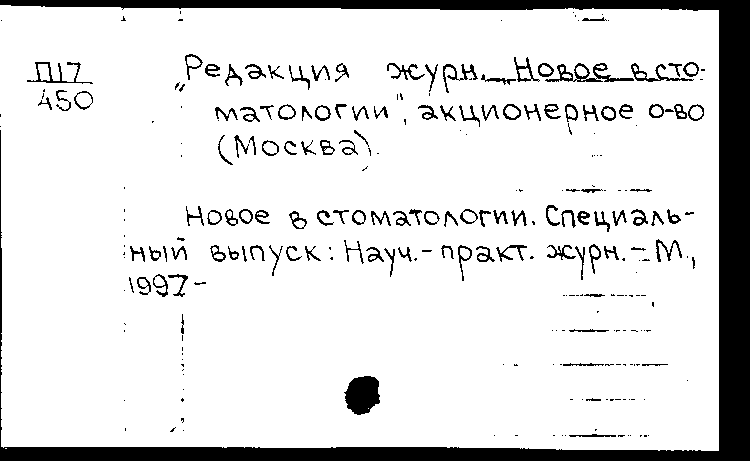 П17
450
„Редакция журн. „Новое в сто-
матологии", акционерное о-во
(Москва).
Новое в стоматологии. Специаль-
ный выпуск: Науч.-практ. журн. – М.,
1997-